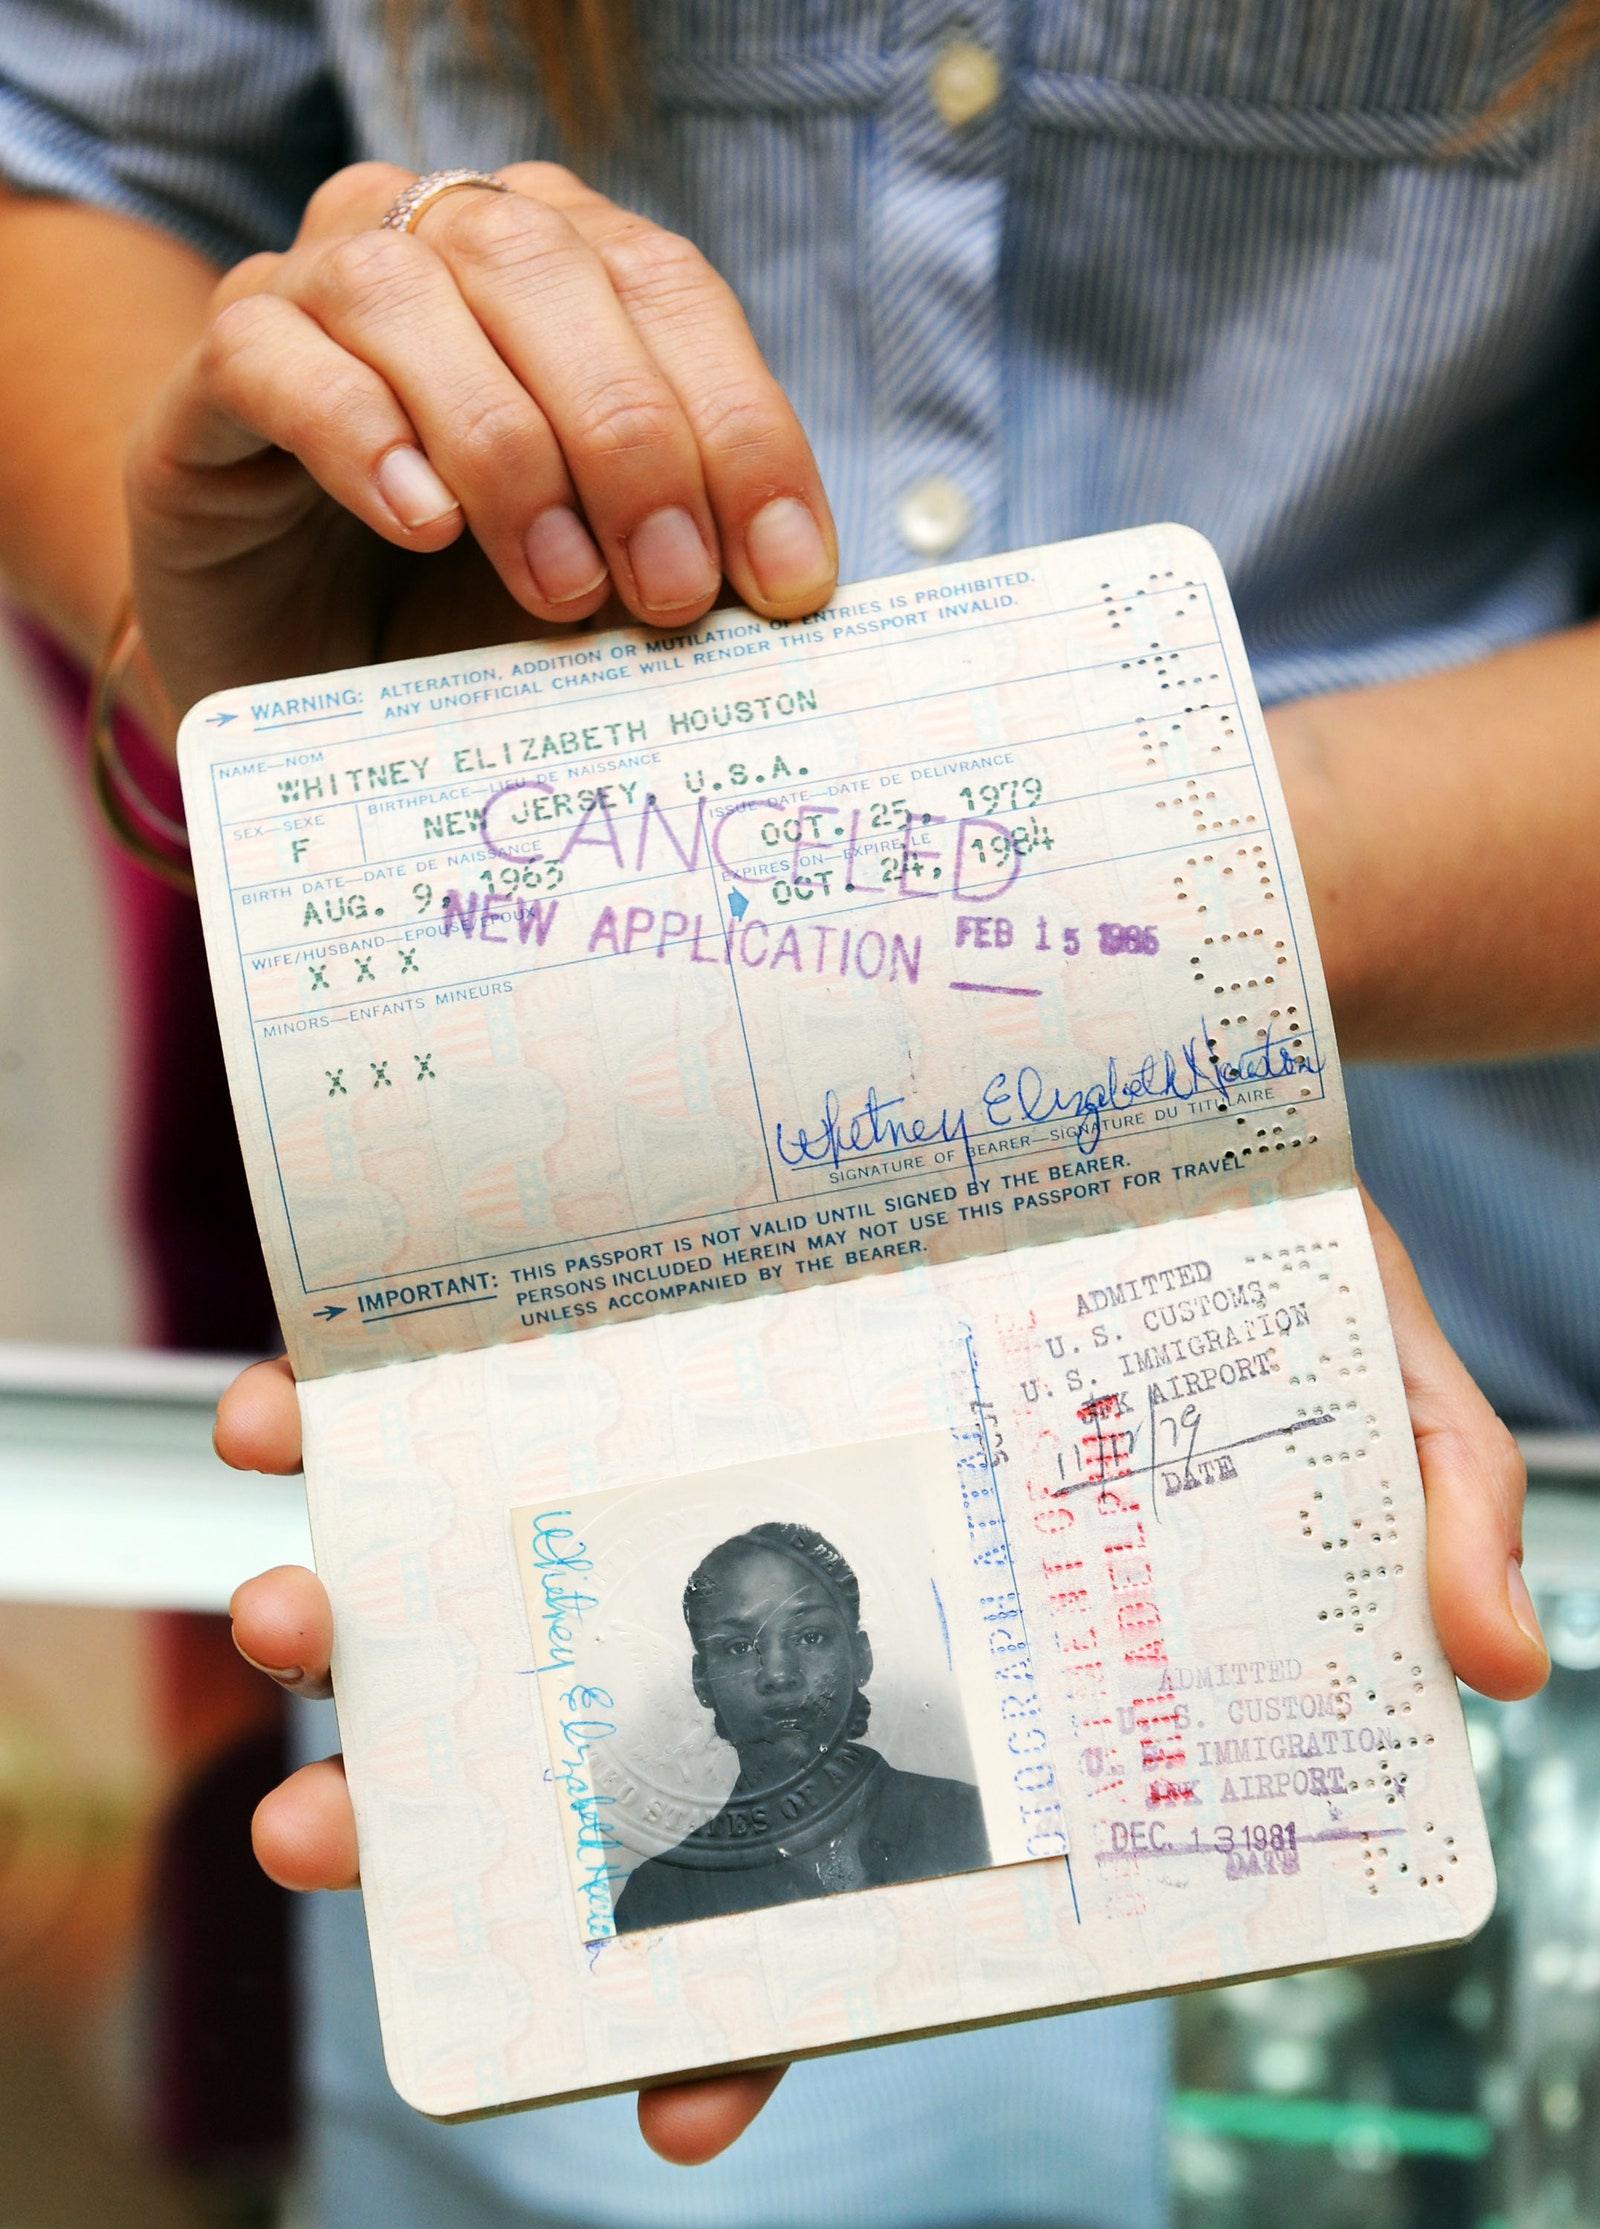 WARNING: ALTERATION, ADDITION OR MUTILATION OF ENTRIES IS PROHIBITED.
ANY UNOFFICIAL CHANGE WILL RENDER THIS PASSPORT INVALID.
NAME—NOM
WHITNEY ELIZABETH HOUSTON
SEX—SEXE
F
BIRTHPLACE—LIEU DE NAISSANCE
NEW JERSEY, U.S.A.
ISSUE DATE—DATE DE DELIVRANCE
OCT. 25, 1979
BIRTH DATE—DATE DE NAISSANCE
AUG. 9, 1963
EXPIRES ON—EXPIRE LE
OCT. 24, 1984
CANCELED
NEW APPLICATION FEB 15
WIFE/HUSBAND—EPOUSE/EPOUX
X X X
MINORS—ENFANTS MINEURS
X X X
Whitney Elizabeth Houston
SIGNATURE OF BEARER—SIGNATURE DU TITULAIRE
IMPORTANT: THIS PASSPORT IS NOT VALID UNTIL SIGNED BY THE BEARER.
PERSONS INCLUDED HEREIN MAY NOT USE THIS PASSPORT FOR TRAVEL
UNLESS ACCOMPANIED BY THE BEARER.
ADMITTED
U. S. CUSTOMS
U. S. IMMIGRATION
JFK AIRPORT
79
DATE
Whitney Elizabeth Houston
STATES OF
ADMITTED
U. S. CUSTOMS
U. S. IMMIGRATION
JFK AIRPORT
DEC. 13 1981
DATE